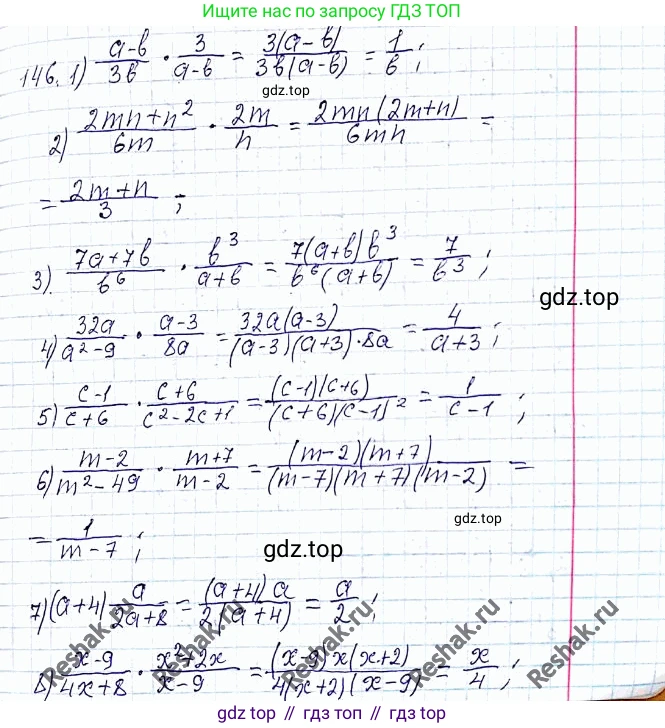 Ищи нас по запросу ГДЗ ТОП
146. 1) (a-b)/(3b) · 3/(a-b) = 3(a-b)/(3b(a-b)) = 1/b ;
gdz.top
2) (2mn+n²)/(6m) · 2m/n = 2mn(2m+n)/(6mn) =
= (2m+n)/3 ;
3) (7a+7b)/b⁶ · b³/(a+b) = 7(a+b)b³/(b⁶(a+b)) = 7/b³ ;
gdz.top
4) 32a/(a²-9) · (a-3)/(8a) = 32a(a-3)/((a-3)(a+3)·8a) = 4/(a+3) ;
5) (c-1)/(c+6) · (c+6)/(c²-2c+1) = (c-1)(c+6)/((c+6)(c-1)²) = 1/(c-1) ;
6) (m-2)/(m²-49) · (m+7)/(m-2) = (m-2)(m+7)/((m-7)(m+7)(m-2)) =
gdz.top
= 1/(m-7) ;
gdz.top
7) (a+4) a/(2a+8) = (a+4)a/(2(a+4)) = a/2 ;
8) (x-9)/(4x+8) · (x²+2x)/(x-9) = (x-9)x(x+2)/(4(x+2)(x-9)) = x/4 ;
Reshak.ru
Reshak.ru
Reshak.ru
Reshak.ru
gdz top // гдз топ // gdz.top